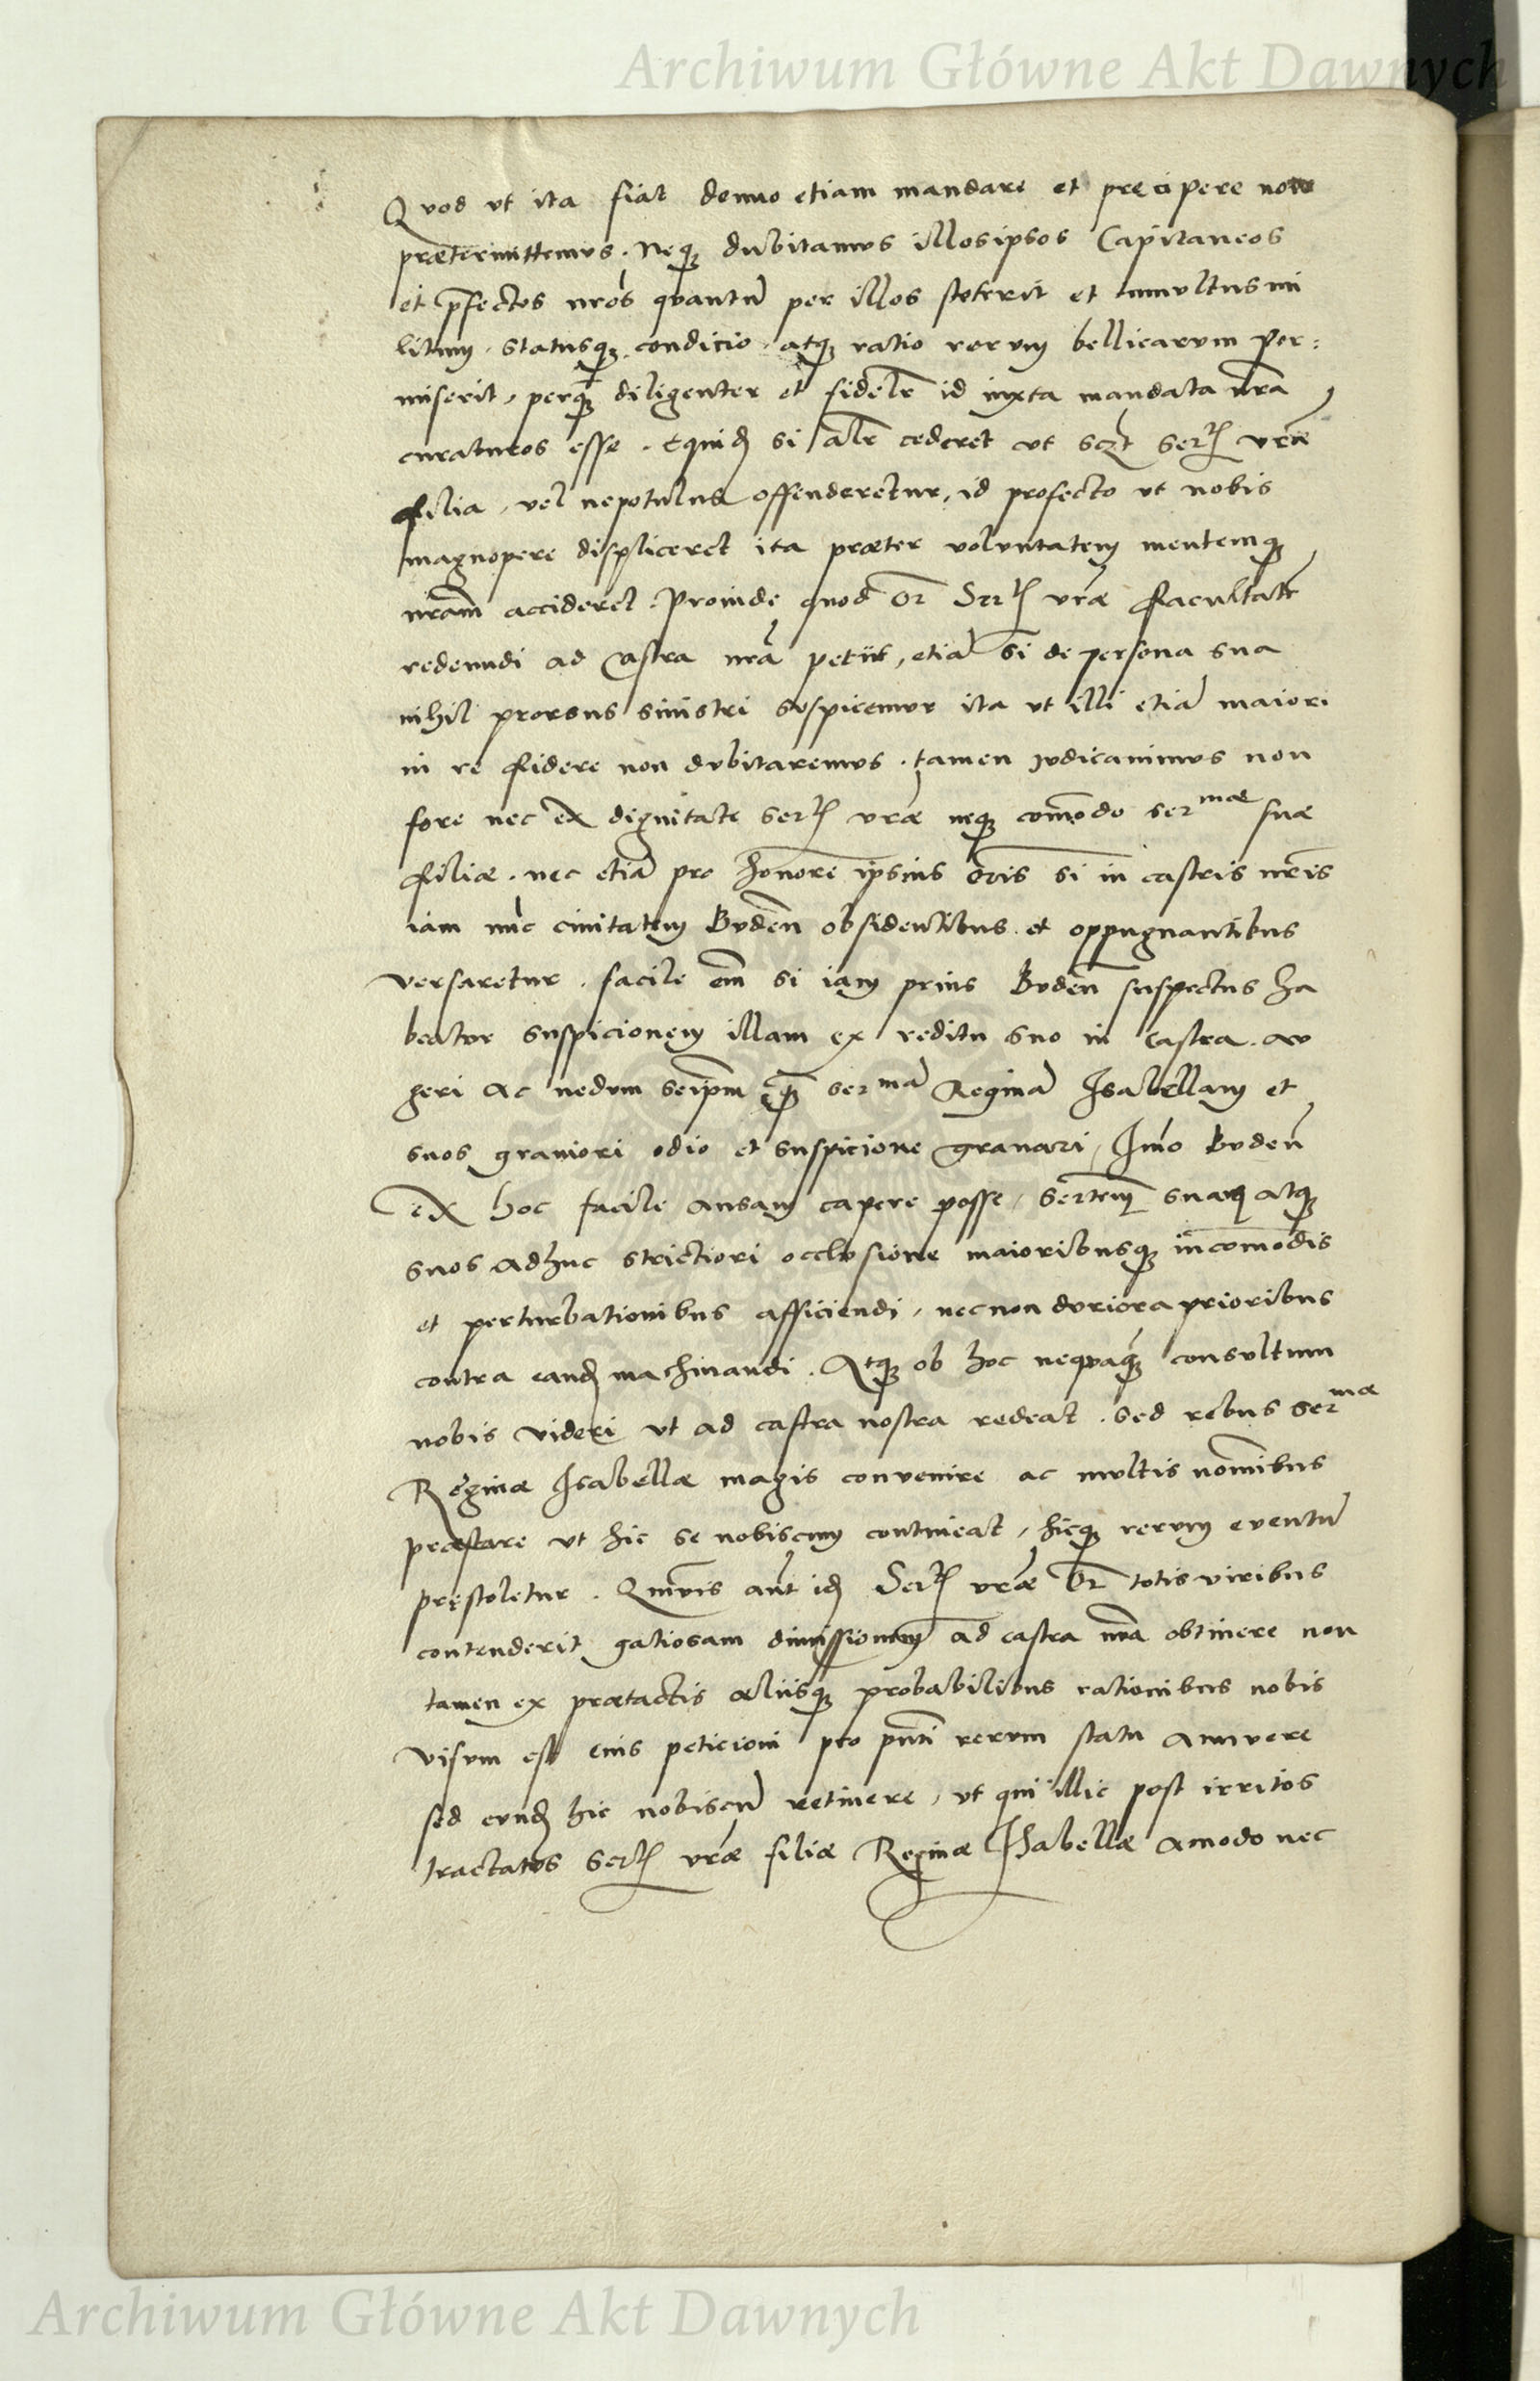 Archiwum Główne Akt Dawnych
Quod ut ita fiat denuo etiam mandare et precipere non
prætermittemus. Neqꝫ dubitamus illos ipsos Capitaneos
et p̄fectos nr̄os quantū per illos steterit et tumultus mi
litum, statusqꝫ condicio, atqꝫ ratio rerum bellicarum per:
miserit, perqꝫ diligenter et fidelr̄ id iuxta mandata nr̄a
curaturos esse. Equidē si alr̄ cederet ut Sertis vrā
filia, vel nepotulus offenderetur, id profecto ut nobis
magnopere displiceret ita præter voluntatem mentemqꝫ
nr̄am accideret. Proinde quod Or̄ Sertis vræ facultatē
redeundi ad Castra nrā petiit, etiā si de persona sua
nihil prorsus sinistri suspicemur ita ut illi etiā maiori
in re fidere non dubitaremus. tamen judicavimus non
fore nec ex dignitate Sertis vræ neqꝫ com̄odo sermae suæ
filiæ. nec etiā pro honore ipsius Or̄is si in castris nr̄is
iam nūc civitatem Buden̄ obsidentibus et oppugnantibus
versaretur. facile em̄ si iam prius Buden̄ suspectus ha
beatur suspicionem illam ex reditu suo in Castra. au
geri ac nedum seip̄m qꝫ sermā Reginā Isabellam et
suos graviori odio et suspicione gravari, Imo Buden̄
ex hoc facile ansam capere posse, Sertem̄ suam atqꝫ
suos adhuc strictiori occlusione maioribusqꝫ incom̄odis
et perturbationibus afficiendi, necnon duriora prioribus
contra eandē machinandi. Atqꝫ ob hoc nequaqꝫ consultum
nobis videri ut ad castra nostra redeat. sed rebus sermae
Reginæ Isabellæ magis convenire ac multis nom̄ibus
præstare ut hic se nobiscum contineat, hicqꝫ rerum eventū
pręstoletur. Quāvis aut̄ idē Sertis vræ Or̄ totis viribus
contenderit gatiosam dimissionem ad castra nr̄a obtinere non
tamen ex prætactis aliisqꝫ probabilibus rationibus nobis
visum est eius peticioni pro pn̄ti rerum statu annuere
sed eundē hic nobiscū retinere, ut qui illic post irritos
tractatus Sertis vræ filiæ Reginæ Isabellæ amodo nec
Archiwum Główne Akt Dawnych